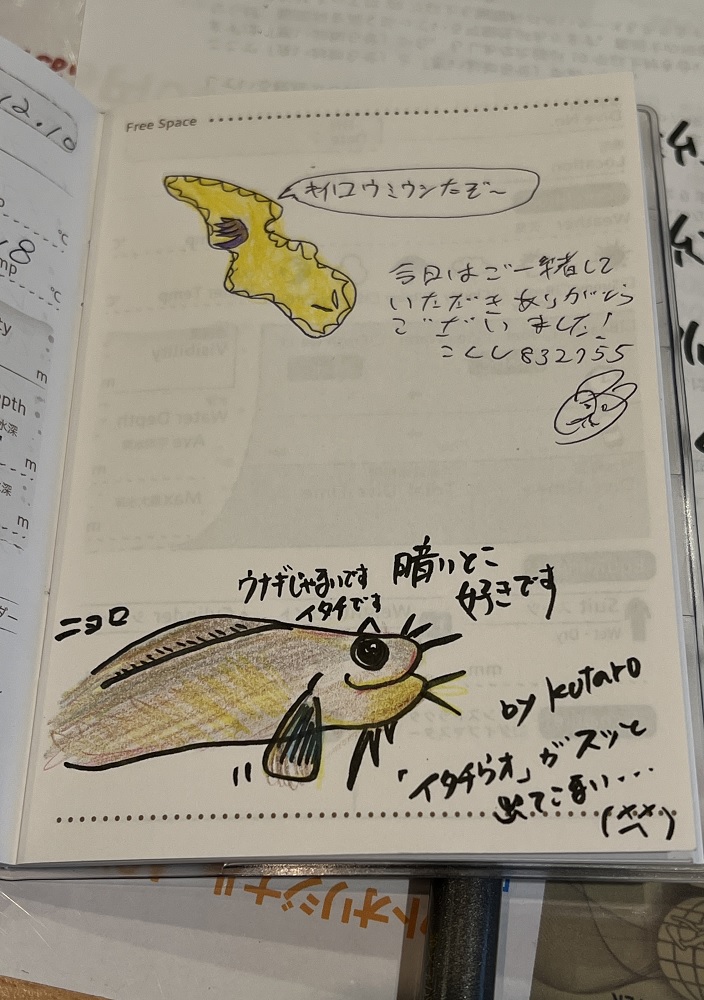 12.10
Free Space
キイロウミウシだぞ〜
今日はご一緒して
いただきありがとう
ございました！
こくし832755
ニョロ
ウナギじゃないです
イタチです
暗いとこ
好きです
by kotaro
「イタチウオ」がスッと
出てこない…
℃
18
mp
℃
ty
m
epth
水深
m
水深
m
ダー
トオリジナル